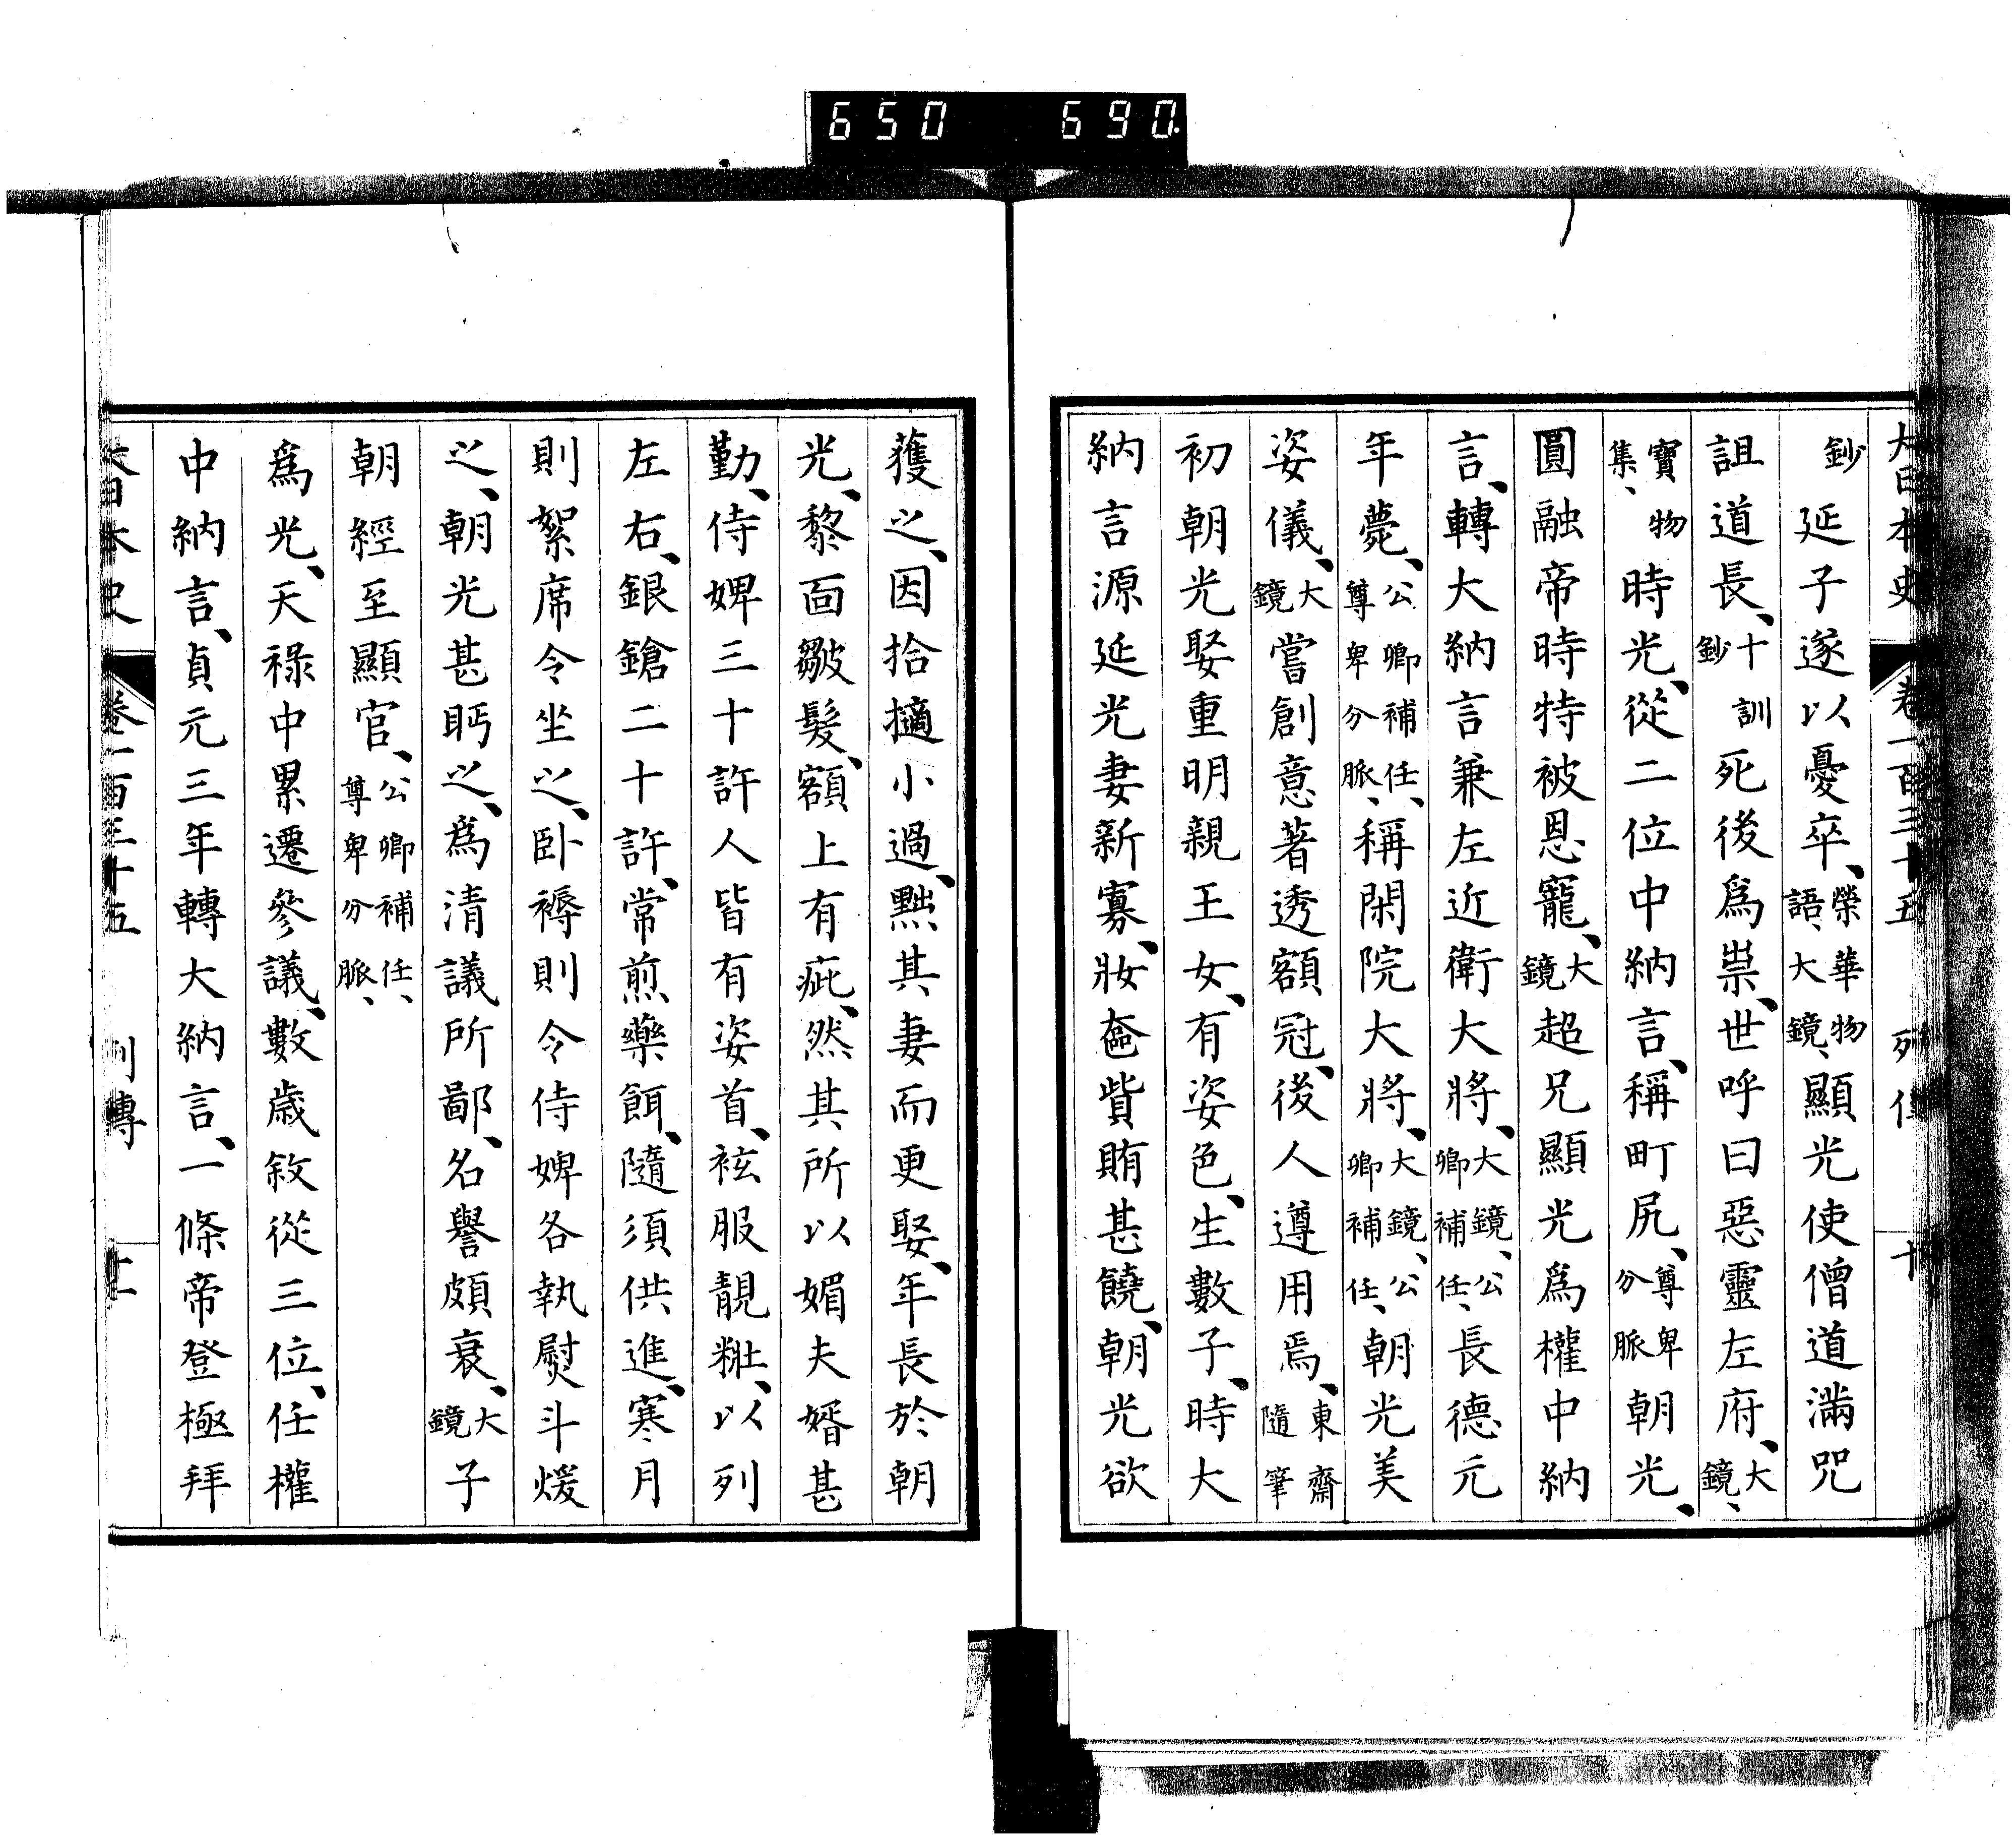 650 690
大日本史 卷一百三十五 列傳 十
鈔延子遂以憂卒、榮華物語、大鏡、顯光使僧道滿咒
詛道長、十訓鈔死後爲祟、世呼曰惡靈左府、大鏡、
寶物集、時光、從二位中納言、稱町尻、尊卑分脈朝光、
圓融帝時特被恩寵、大鏡超兄顯光爲權中納
言、轉大納言兼左近衛大將、大鏡、公卿補任、長德元
年薨、公卿補任、尊卑分脈、稱閑院大將、大鏡、公卿補任、朝光美
姿儀、大鏡嘗創意著透額冠、後人遵用焉、東齋隨筆
初朝光娶重明親王女、有姿色、生數子、時大
納言源延光妻新寡、妝奩貲賄甚饒、朝光欲
獲之、因拾擿小過、黜其妻而更娶、年長於朝
光、黎面皺髮、額上有疵、然其所以媚夫婿甚
勤、侍婢三十許人皆有姿首、袨服靚粧、以列
左右、銀鎗二十許、常煎藥餌、隨須供進、寒月
則絮席令坐之、卧褥則令侍婢各執熨斗煖
之、朝光甚眄之、爲清議所鄙、名譽頗衰、大鏡子
朝經至顯官、公卿補任、尊卑分脈、
爲光、天祿中累遷參議、數歲敘從三位、任權
中納言、貞元三年轉大納言、一條帝登極拜
大日本史 卷一百三十五 列傳 十一